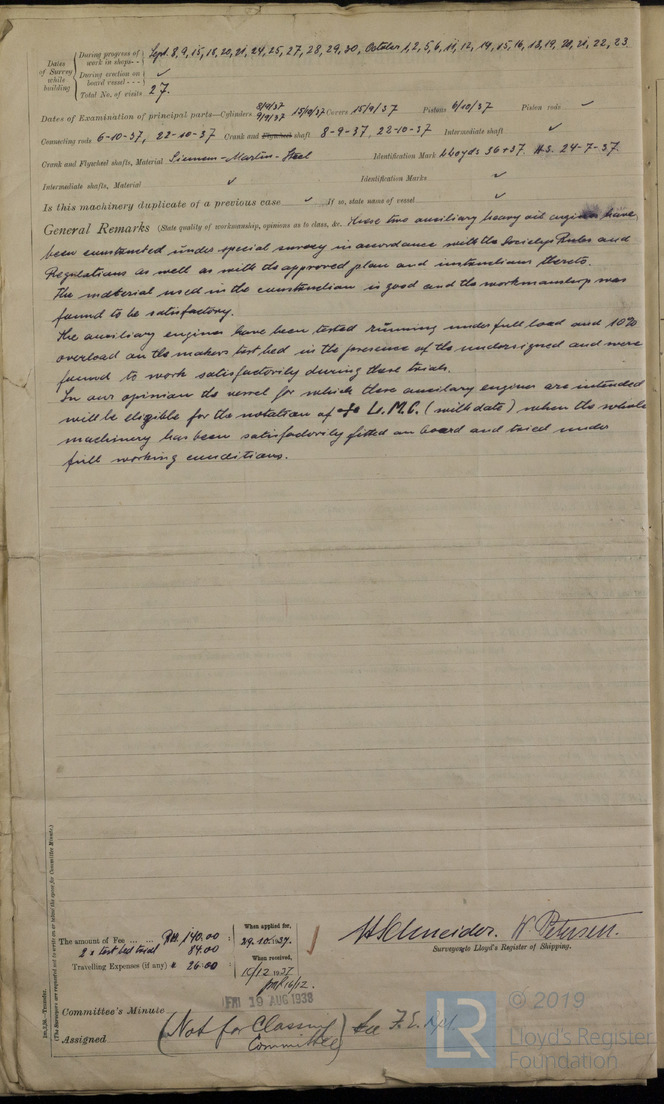 Dates of Survey while building
During progress of work in shops - - Sept. 8, 9, 15, 18, 20, 21, 24, 25, 27, 28, 29, 30, October 1, 2, 5, 6, 11, 12, 14, 15, 16, 18, 19, 20, 21, 22, 23.
During erection on board vessel - - - ✓
Total No. of visits 27.
Dates of Examination of principal parts—Cylinders 8/9/37 9/9/37 15/9/37 Covers 15/9/37 Pistons 6/10/37 Piston rods ✓
Connecting rods 6-10-37, 22-10-37 Crank and Flywheel shaft 8-9-37, 22-10-37 Intermediate shaft ✓
Crank and Flywheel shafts, Material Siemens-Martin-Steel Identification Mark Lloyds 36+37. H.S. 24-7-37.
Intermediate shafts, Material ✓ Identification Marks ✓
Is this machinery duplicate of a previous case ✓ If so, state name of vessel ✓
General Remarks (State quality of workmanship, opinions as to class, &c. These two auxiliary heavy oil engines have
been constructed under special survey in accordance with the Society's Rules and
Regulations as well as with the approved plan and instructions thereto.
The material used in the construction is good and the workmanship was
found to be satisfactory.
The auxiliary engines have been tested running under full load and 10%
overload on the makers test bed in the presence of the undersigned and were
found to work satisfactorily during these trials.
In our opinion the vessel for which these auxilary engines are intended
will be eligible for the notation of + L.M.C. (with date) when the whole
machinery has been satisfactorily fitted on board and tried under
full working conditions.
The amount of Fee ... ... RM. 140.00 :
2 x test bed trial 84.00
Travelling Expenses (if any) " 26.00
When applied for,
29.10.1937.
When received,
10/12 1937
16/12.
H Schneider. W Petersen.
Surveyor to Lloyd's Register of Shipping.
FRI 19 AUG 1938
Committee's Minute
Assigned
(Not for Classing Committee) See F.E. Rpt.
© 2019
LR
Lloyd's Register
Foundation
(The Surveyors are requested not to write on or below the space for Committee Minute.)